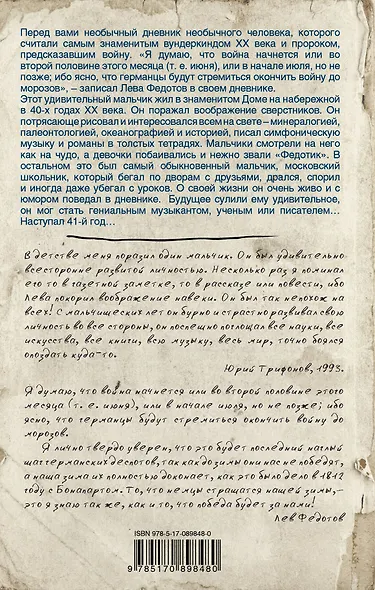 Перед вами необычный дневник необычного человека, которого
считали самым знаменитым вундеркиндом XX века и пророком,
предсказавшим войну. «Я думаю, что война начнется или во
второй половине этого месяца (т. е. июня), или в начале июля, но не
позже; ибо ясно, что германцы будут стремиться окончить войну до
морозов», – записал Лева Федотов в своем дневнике.
Этот удивительный мальчик жил в знаменитом Доме на набережной
в 40-х годах XX века. Он поражал воображение сверстников. Он
потрясающе рисовал и интересовался всем на свете – минералогией,
палеонтологией, океанографией и историей, писал симфоническую
музыку и романы в толстых тетрадях. Мальчики смотрели на него
как на чудо, а девочки побаивались и нежно звали «Федотик». В
остальном это был самый обыкновенный мальчик, московский
школьник, который бегал по дворам с друзьями, дрался, спорил
и иногда даже убегал с уроков. О своей жизни он очень живо и с
юмором поведал в дневнике. Будущее сулили ему удивительное,
он мог стать гениальным музыкантом, ученым или писателем…
Наступал 41-й год…
В детстве меня поразил один мальчик. Он был удивительно
всесторонне развитой личностью. Несколько раз я поминал
его то в газетной заметке, то в рассказе или повести, ибо
Лева покорил воображение навеки. Он был так непохож на
всех! С мальчишеских лет он бурно и страстно развивал свою
личность во все стороны, он поспешно поглощал все науки, все
искусства, все книги, всю музыку, весь мир, точно боялся
опоздать куда-то.
Юрий Трифонов, 1993.
Я думаю, что война начнется или во второй половине этого
месяца (т. е. июня), или в начале июля, но не позже; ибо
ясно, что германцы будут стремиться окончить войну до
морозов.
Я лично твердо уверен, что это будет последний наглый
шаг германских деспотов, так как до зимы они нас не победят,
а наша зима их полностью доконает, как это было дело в 1812
году с Бонапартом. То, что немцы страшатся нашей зимы, –
это я знаю так же, как и то, что победа будет за нами!
Лев Федотов
ISBN 978-5-17-089848-0
9 785170 898480